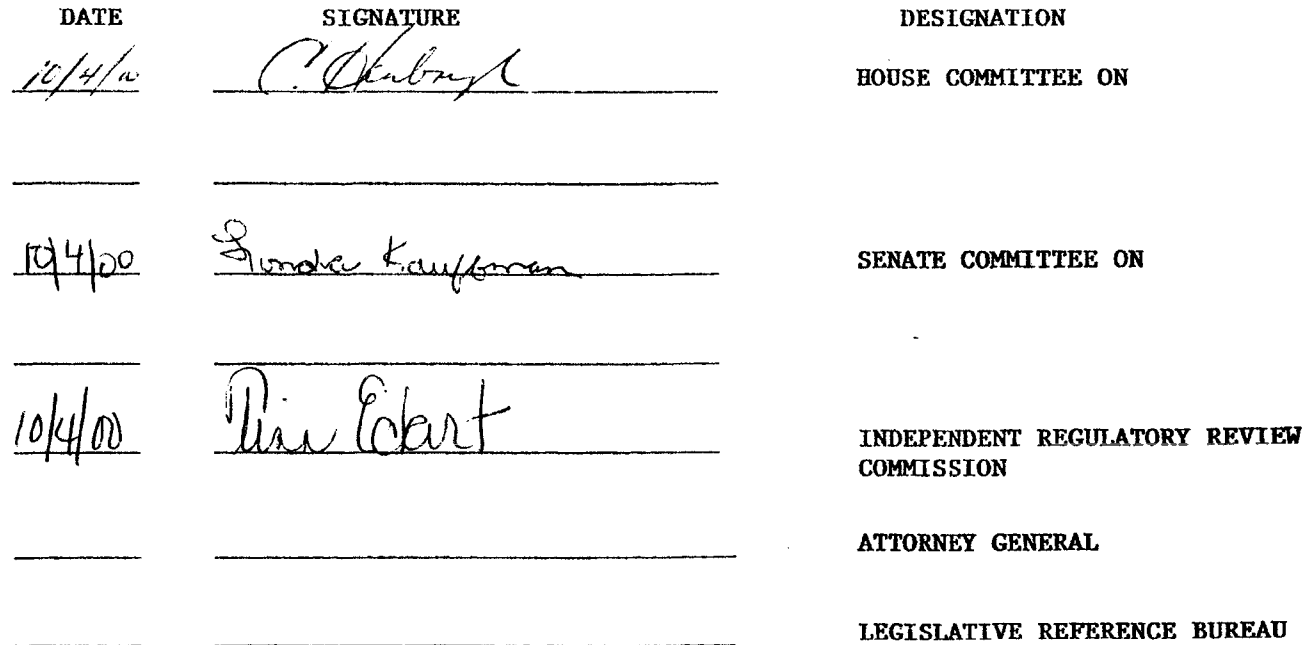 DATE SIGNATURE DESIGNATION
10/4/00 C. HOUSE COMMITTEE ON
10/4/00 Kauffman SENATE COMMITTEE ON
10/4/00 Eckart INDEPENDENT REGULATORY REVIEW
COMMISSION
ATTORNEY GENERAL
LEGISLATIVE REFERENCE BUREAU